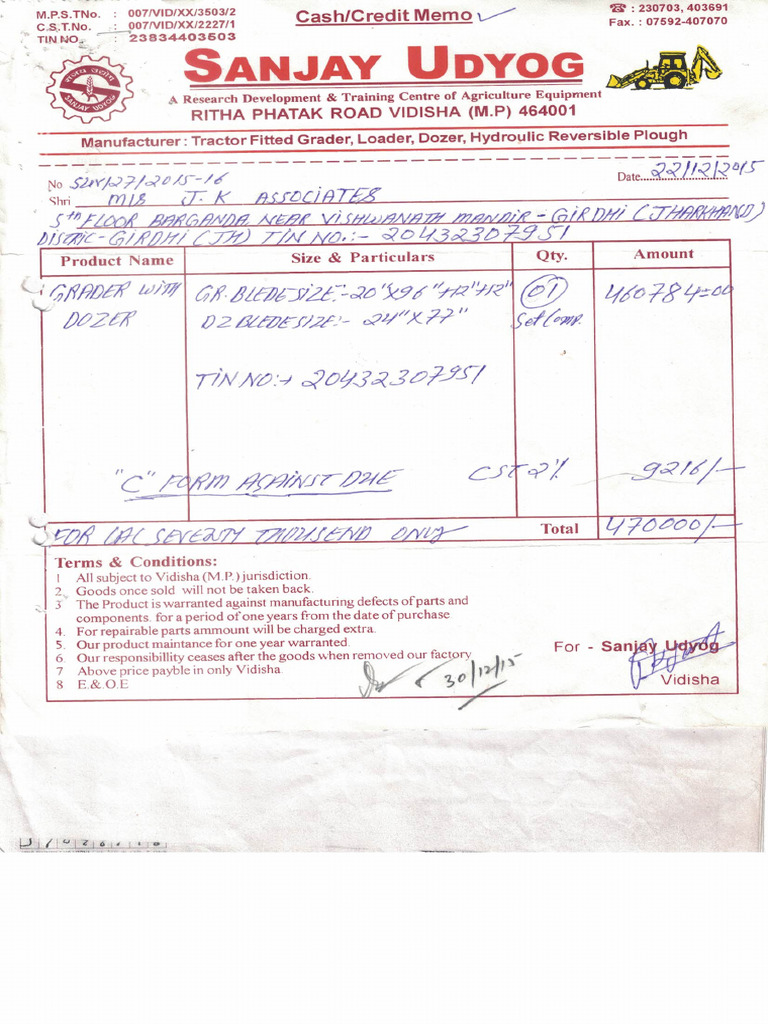 M.P.S.TNo. : 007/VID/XX/3503/2
C.S.T.No. : 007/VID/XX/2227/1
TIN NO. : 23834403503
Cash/Credit Memo
☎ : 230703, 403691
Fax. : 07592-407070
SANJAY UDYOG
SANJAY UDYOG
A Research Development & Training Centre of Agriculture Equipment
RITHA PHATAK ROAD VIDISHA (M.P) 464001
Manufacturer : Tractor Fitted Grader, Loader, Dozer, Hydroulic Reversible Plough
No /27/2015-16 Date 22/12/2015
Shri M/S J.K ASSOCIATES
5th FLOOR BARGANDA NEAR VISHWANATH MANDIR - GIRDHI (JHARKHAND)
DISTRIC-GIRDHI (JH) TIN NO.:- 20432307951
Product Name Size & Particulars Qty. Amount
GRADER WITH GR. BLEDE SIZE:- 20"X96"+12"+12" 01 460784=00
DOZER DZ BLEDE SIZE:- 24"X77" Set Comp.
TIN NO:+ 20432307951
"C" FORM AGAINST DUE CST 2% 9216/-
FOR LAC SEVENTY THOUSEND ONLY Total 470000/-
Terms & Conditions:
1 All subject to Vidisha (M.P.) jurisdiction.
2 Goods once sold will not be taken back.
3 The Product is warranted against manufacturing defects of parts and
components. for a period of one years from the date of purchase
4. For repairable parts ammount will be charged extra.
5. Our product maintance for one year warranted.
6. Our responsibillity ceases after the goods when removed our factory
7 Above price payble in only Vidisha.
8 E.& O.E
For - Sanjay Udyog
Vidisha
30/12/15